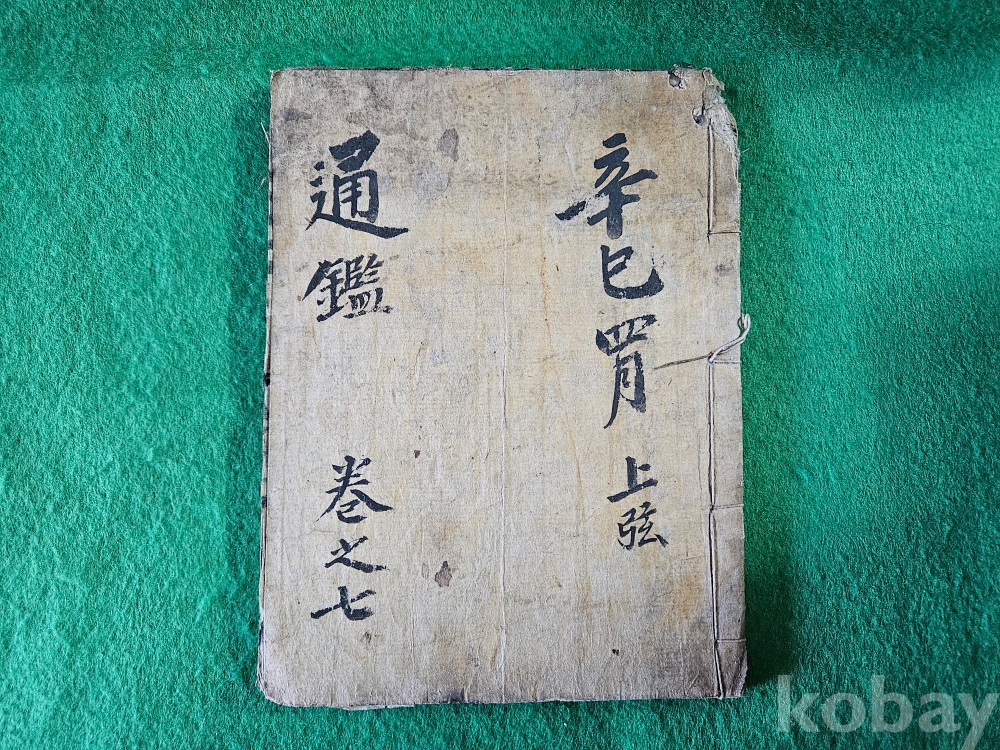 辛巳四月上弦
通鑑 卷之七
kobay